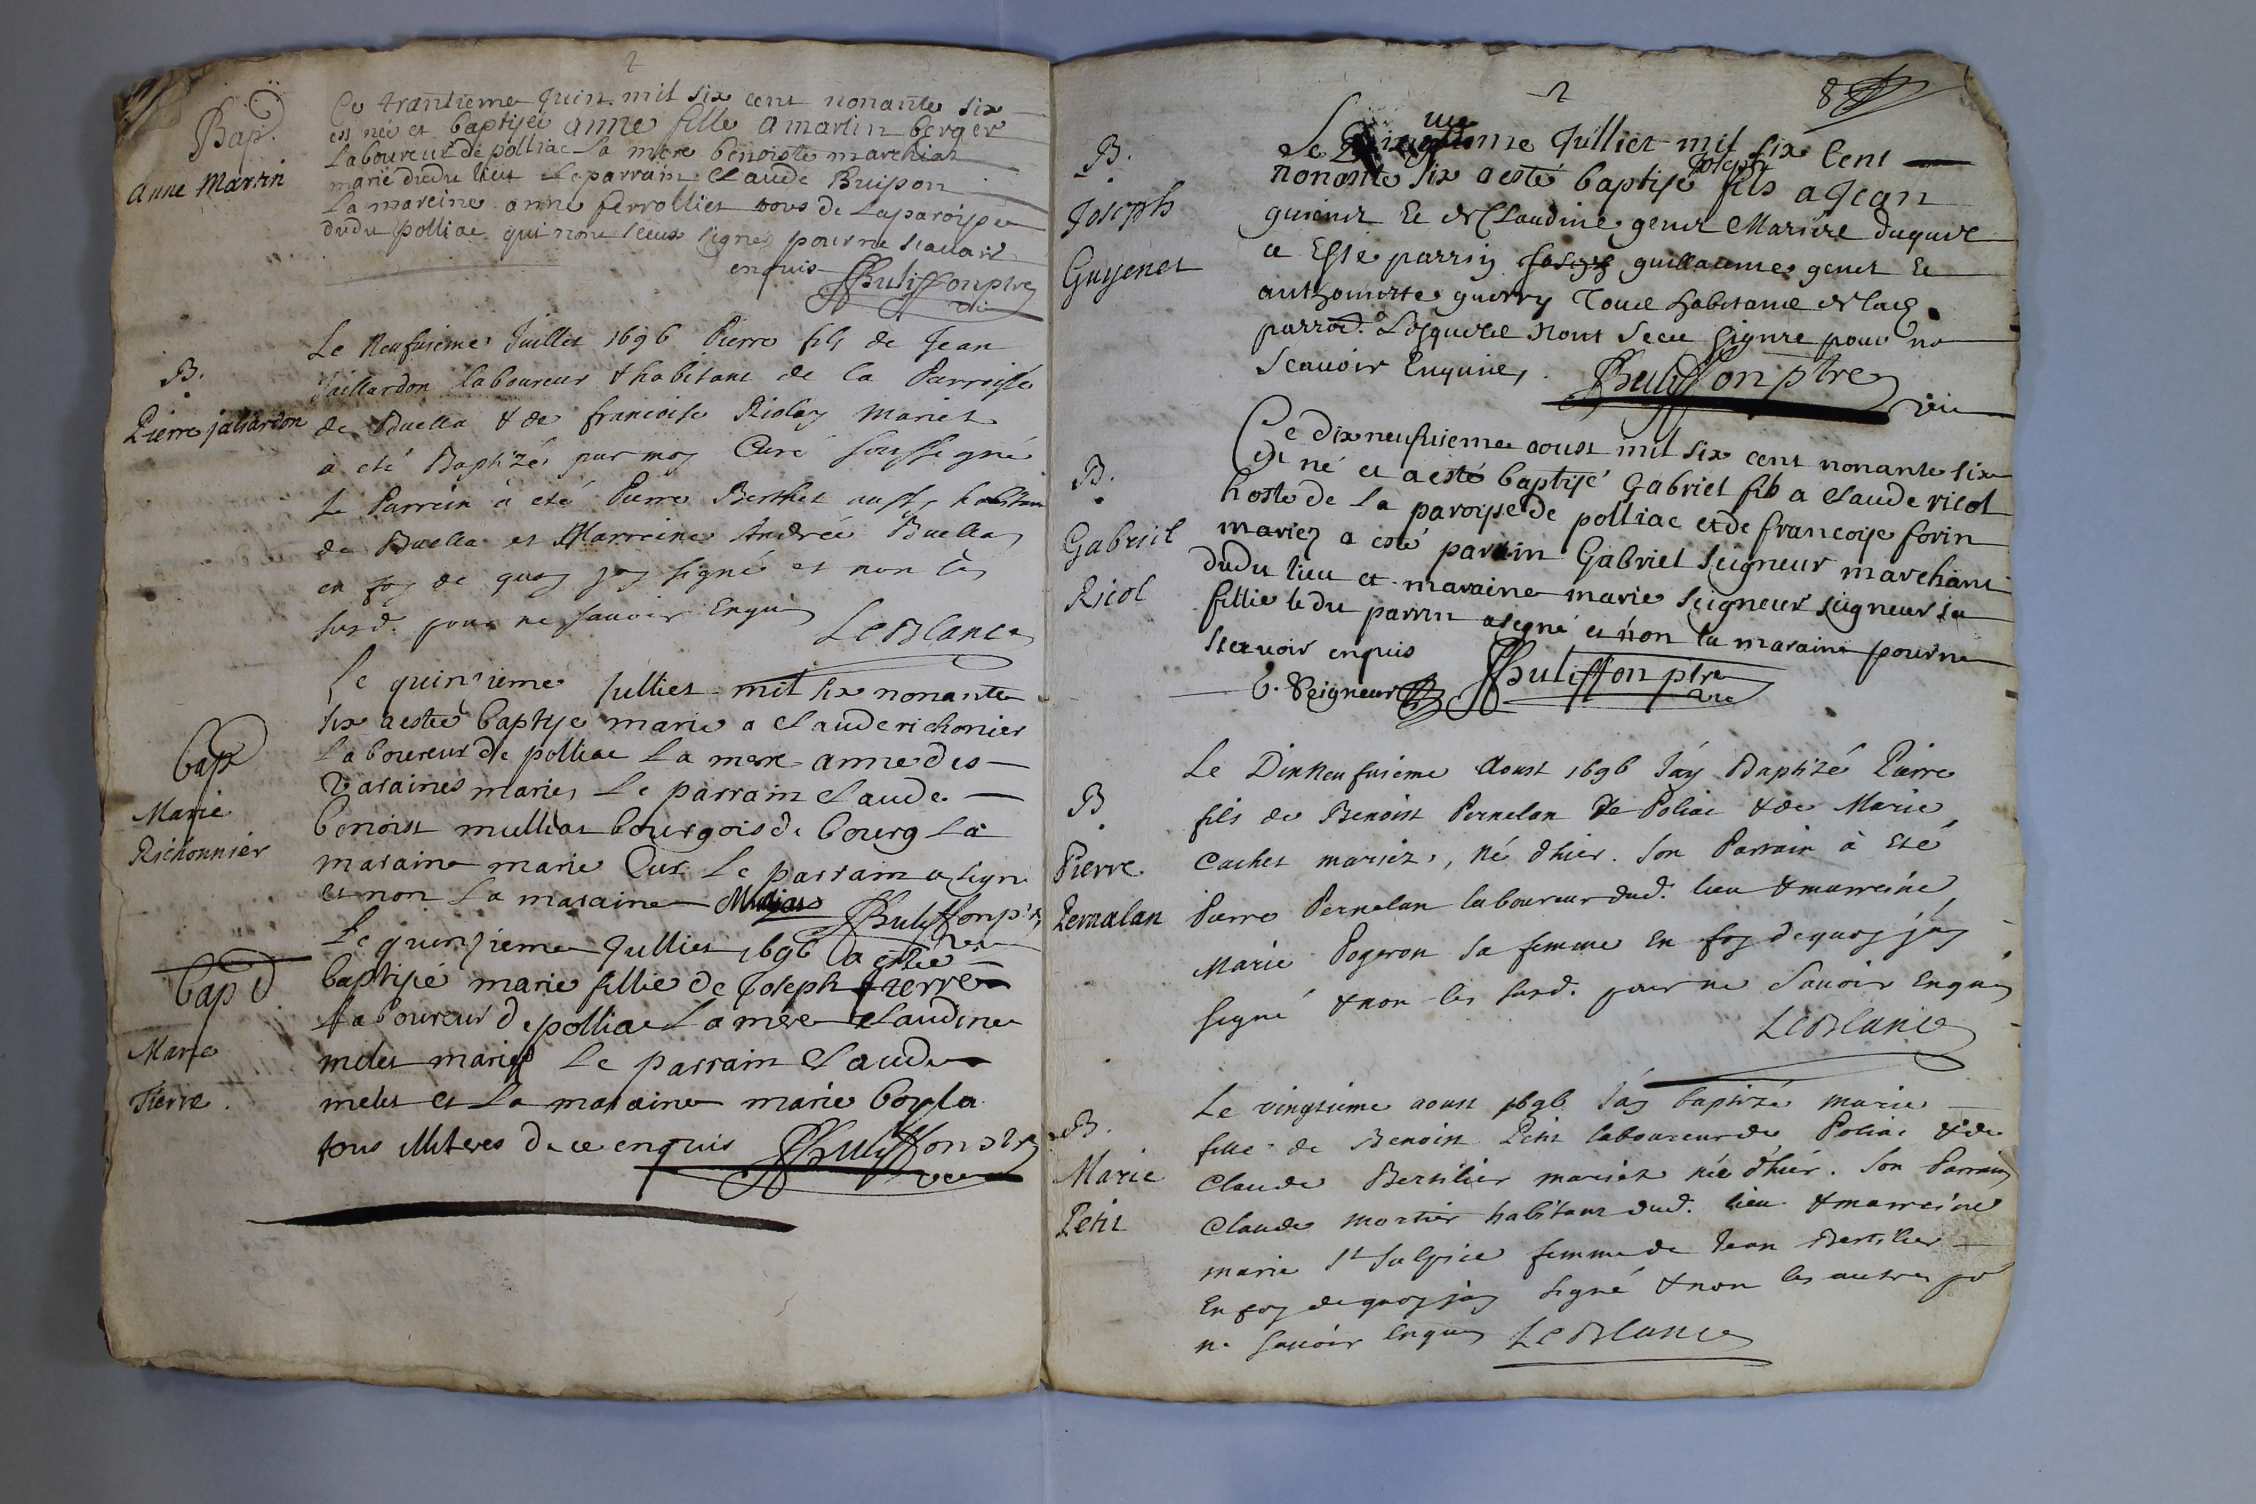 2
Bap.
anne Martin
Ce trantieme Juin mil six cent nonante six
est née et baptisée anne fille a martin berger
laboureur de polliac la mere benoiste marchias
marie dudu lieu le parrain Claude Buisson
la mareine anne ferrolliet tous de la paroisse
dudu polliac qui nont sceus signer pour ne scavoir
enquis Bulisson ptre
vic
B.
Pierre jaliardon
Le Neufvieme Juillet 1696 Pierre fils de Jean
Jaillardon laboureur & habitant de la Parroisse
de Buella & de francoise Riolay Mariez
a eté Baptizé par moy Curé soussigné
le Parrein à eté Pierre Berthet aussy habitant
de Buella et Marreine Andrée Buella
en foy de quoy j'ay signé et non les
susd. pour ne savoir Enquis
LeBlanc
Bap
Marie
Richonnier
Le quinzieme Julliet mil six nonante
six a esté baptise marie a Claude richonier
laboureur de polliac la mere anne des
varaines maries le parrain Claude
benoist mulliat bourgois de bourg la
maraine marie Cus le parrain a signe
et non la maraine Muliat
Bulisson ptre
vic
Bap d
Marie
Pierre.
Le quinzieme Julliet 1696 a estée
baptisée marie fillie de Joseph pierre
laboureur de polliac la mere Claudine
melet maries le parrain Claude
melet et la maraine marie boyla
tous illiteres de ce enquis Bulisson ptre
vic
2
8
B.
Joseph
Guyenet
Le me Julliet mil six Cent
nonante six a esté baptise Joseph fils a Jean
guienet Et de Claudine genet Mariere duquel
a Esté parrin guillaume genet Et
anthoinette guerry Tous habitans de lad.
parroi. Lesquelz Nont sceu signre pour ne
scavoir Enquise, Bulisson ptre
vic
B.
Gabriel
Ricol
Ce dix neufvieme aoust mil six cent nonante six
est né et a esté baptisé Gabriel fils a Claude ricol
hoste de la paroisse de polliac et de francoise forin
mariez a esté parrain Gabriel seigneur marchant
dudu lieu et maraine marie seigneur seigneur sa
fillie le du parrin a signé et non la maraine pour ne
scavoir enquis Bulisson ptre
G. Seigneur vic
B
Pierre
Pernalan
Le Dixneufvieme Aoust 1696 J'ay Baptizé Pierre
fils de Benoist Pernelan de Poliac & de Marie
Cachet mariez, né d'hier. Son Parrain à Eté
Pierre Pernelan laboureur dud. lieu & marreine
Marie Pogeron sa femme En foy de quoy j'ay
signé & non les susd. pour ne Savoir Enquis
LeBlanc
B.
Marie
Petit
Le vingtieme aoust 1696 J'ay baptizé marie
fille de Benoist Petit laboureur de Poliac & de
Claude Bertilier mariez née d'hier. Son Parrain
Claude Mortier habitant dud. lieu & marreine
marie St Sulpice femme de Jean Bertilier
En foy de quoy j'ay signé & non les autres pr
ne savoir Enquis LeBlanc